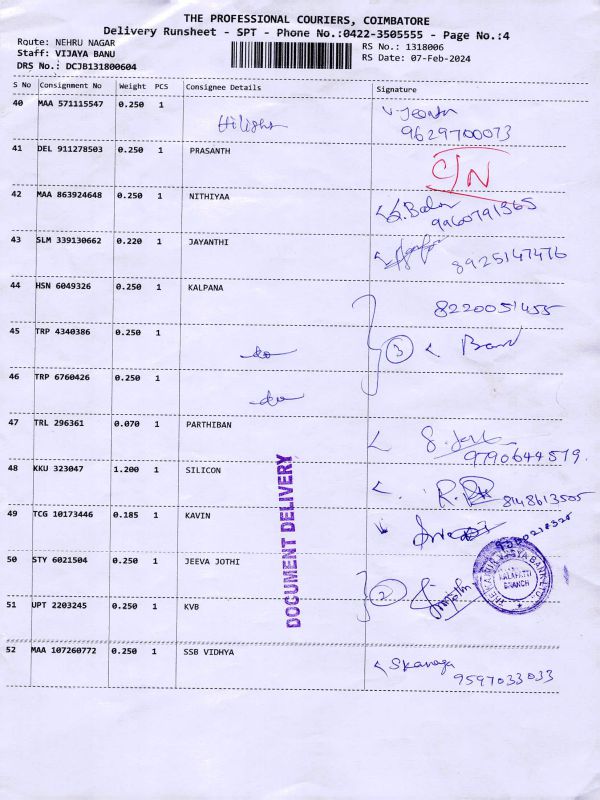 THE PROFESSIONAL COURIERS, COIMBATORE
Delivery Runsheet - SPT - Phone No.:0422-3505555 - Page No.:4
Route: NEHRU NAGAR
Staff: VIJAYA BANU
DRS No.: DCJB131800604
RS No.: 1318006
RS Date: 07-Feb-2024
S No Consignment No Weight PCS Consignee Details Signature
40 MAA 571115547 0.250 1
9629700073
41 DEL 911278503 0.250 1 PRASANTH C/N
42 MAA 863924648 0.250 1 NITHIYAA
9960791365
43 SLM 339130662 0.220 1 JAYANTHI
8925147476
44 HSN 6049326 0.250 1 KALPANA
8220051455
45 TRP 4340386 0.250 1 do 3
46 TRP 6760426 0.250 1 do
47 TRL 296361 0.070 1 PARTHIBAN
9790644519.
48 KKU 323047 1.200 1 SILICON
8148613505
49 TCG 10173446 0.185 1 KAVIN
50 STY 6021504 0.250 1 JEEVA JOTHI
2
51 UPT 2203245 0.250 1 KVB
THE KARUR VYSYA BANK LTD.
KALAPATTI
BRANCH
DOCUMENT DELIVERY
52 MAA 107260772 0.250 1 SSB VIDHYA
Skanaga
9597033033